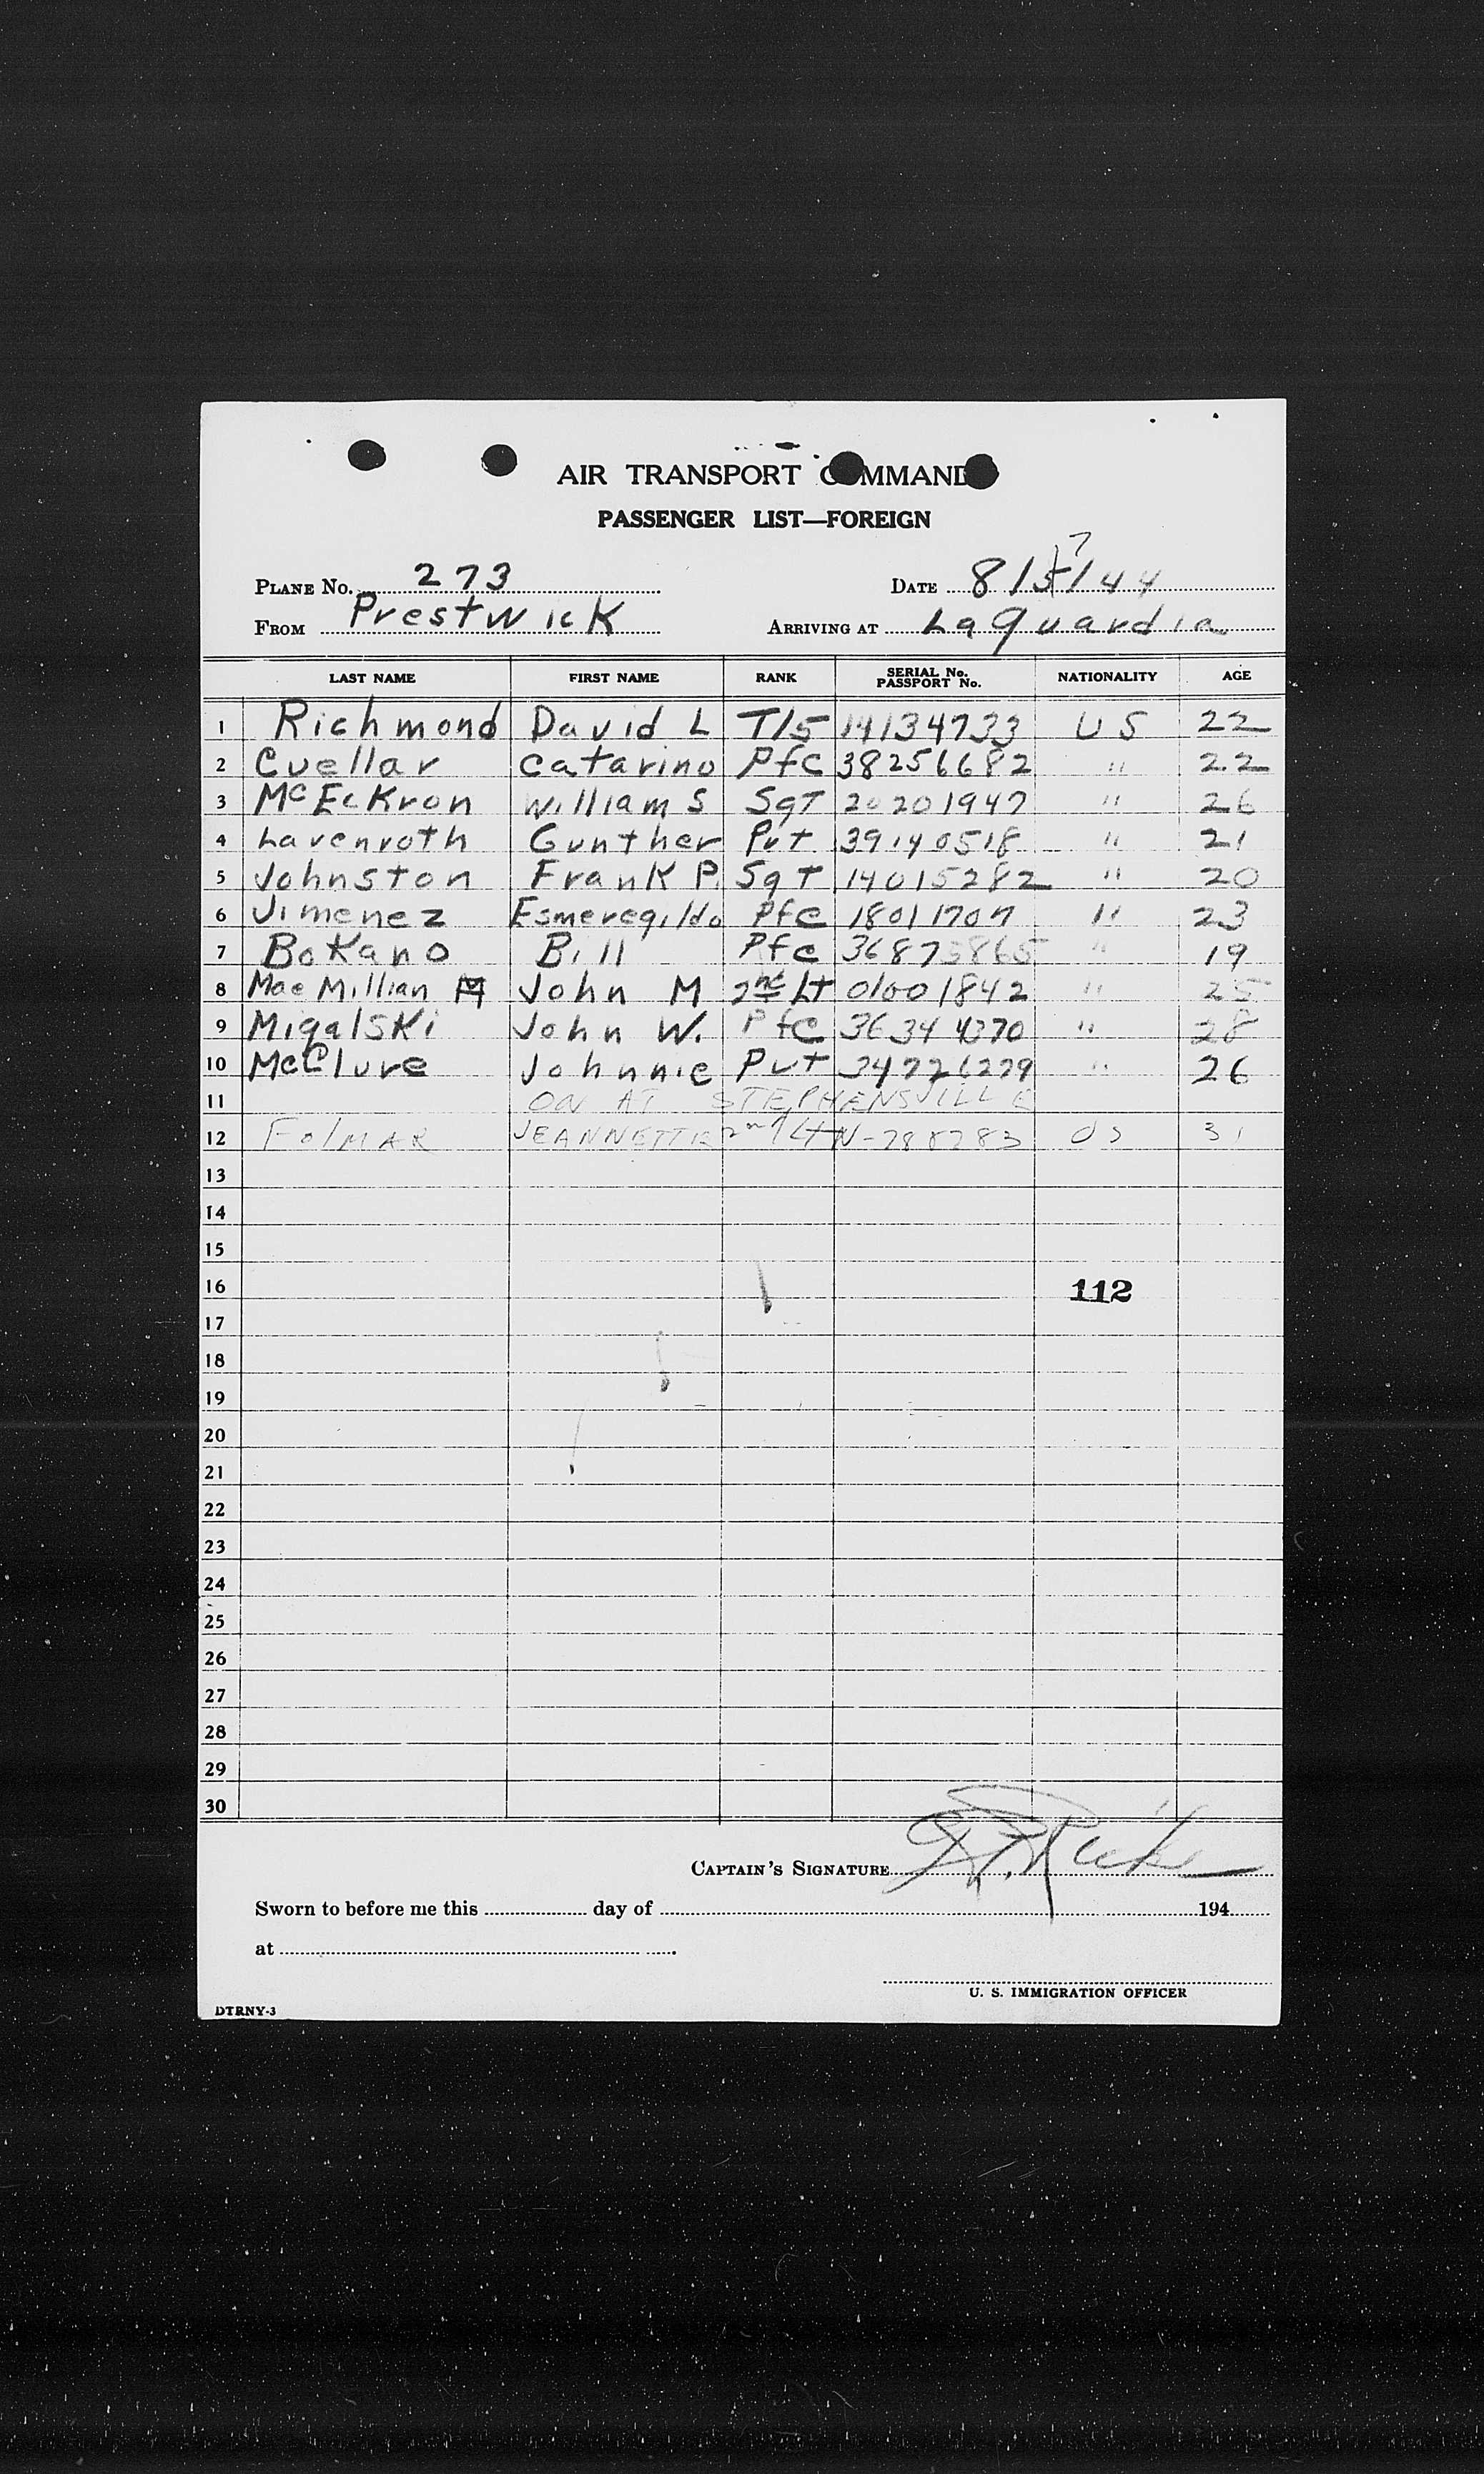 AIR TRANSPORT COMMAND
PASSENGER LIST—FOREIGN
PLANE No. 273 DATE 8/5/44 7
FROM Prestwick ARRIVING AT LaGuardia
LAST NAME FIRST NAME RANK SERIAL No. PASSPORT No. NATIONALITY AGE
1 Richmond David L T/5 14134733 US 22
2 Cuellar Catarino Pfc 38256682 " 22
3 McEckron William S Sgt 20201947 " 26
4 Lavenroth Gunther Pvt 39140518 " 21
5 Johnston Frank P. Sgt 14015282 " 20
6 Jimenez Esmeregildo Pfc 18011707 " 23
7 Bokano Bill Pfc 36873865 " 19
8 MacMillian M John M 2nd Lt 01001842 " 25
9 Migalski John W. Pfc 36344370 " 28
10 McClure Johnnie Pvt 34726279 " 26
11 ON AT STEPHENSVILLE
12 FOLMAR JEANNETTE 2nd Lt N-788783 US 31
13
14
15
16 112
17
18
19
20
21
22
23
24
25
26
27
28
29
30
CAPTAIN'S SIGNATURE
Sworn to before me this day of 194
at
U. S. IMMIGRATION OFFICER
DTRNY-3